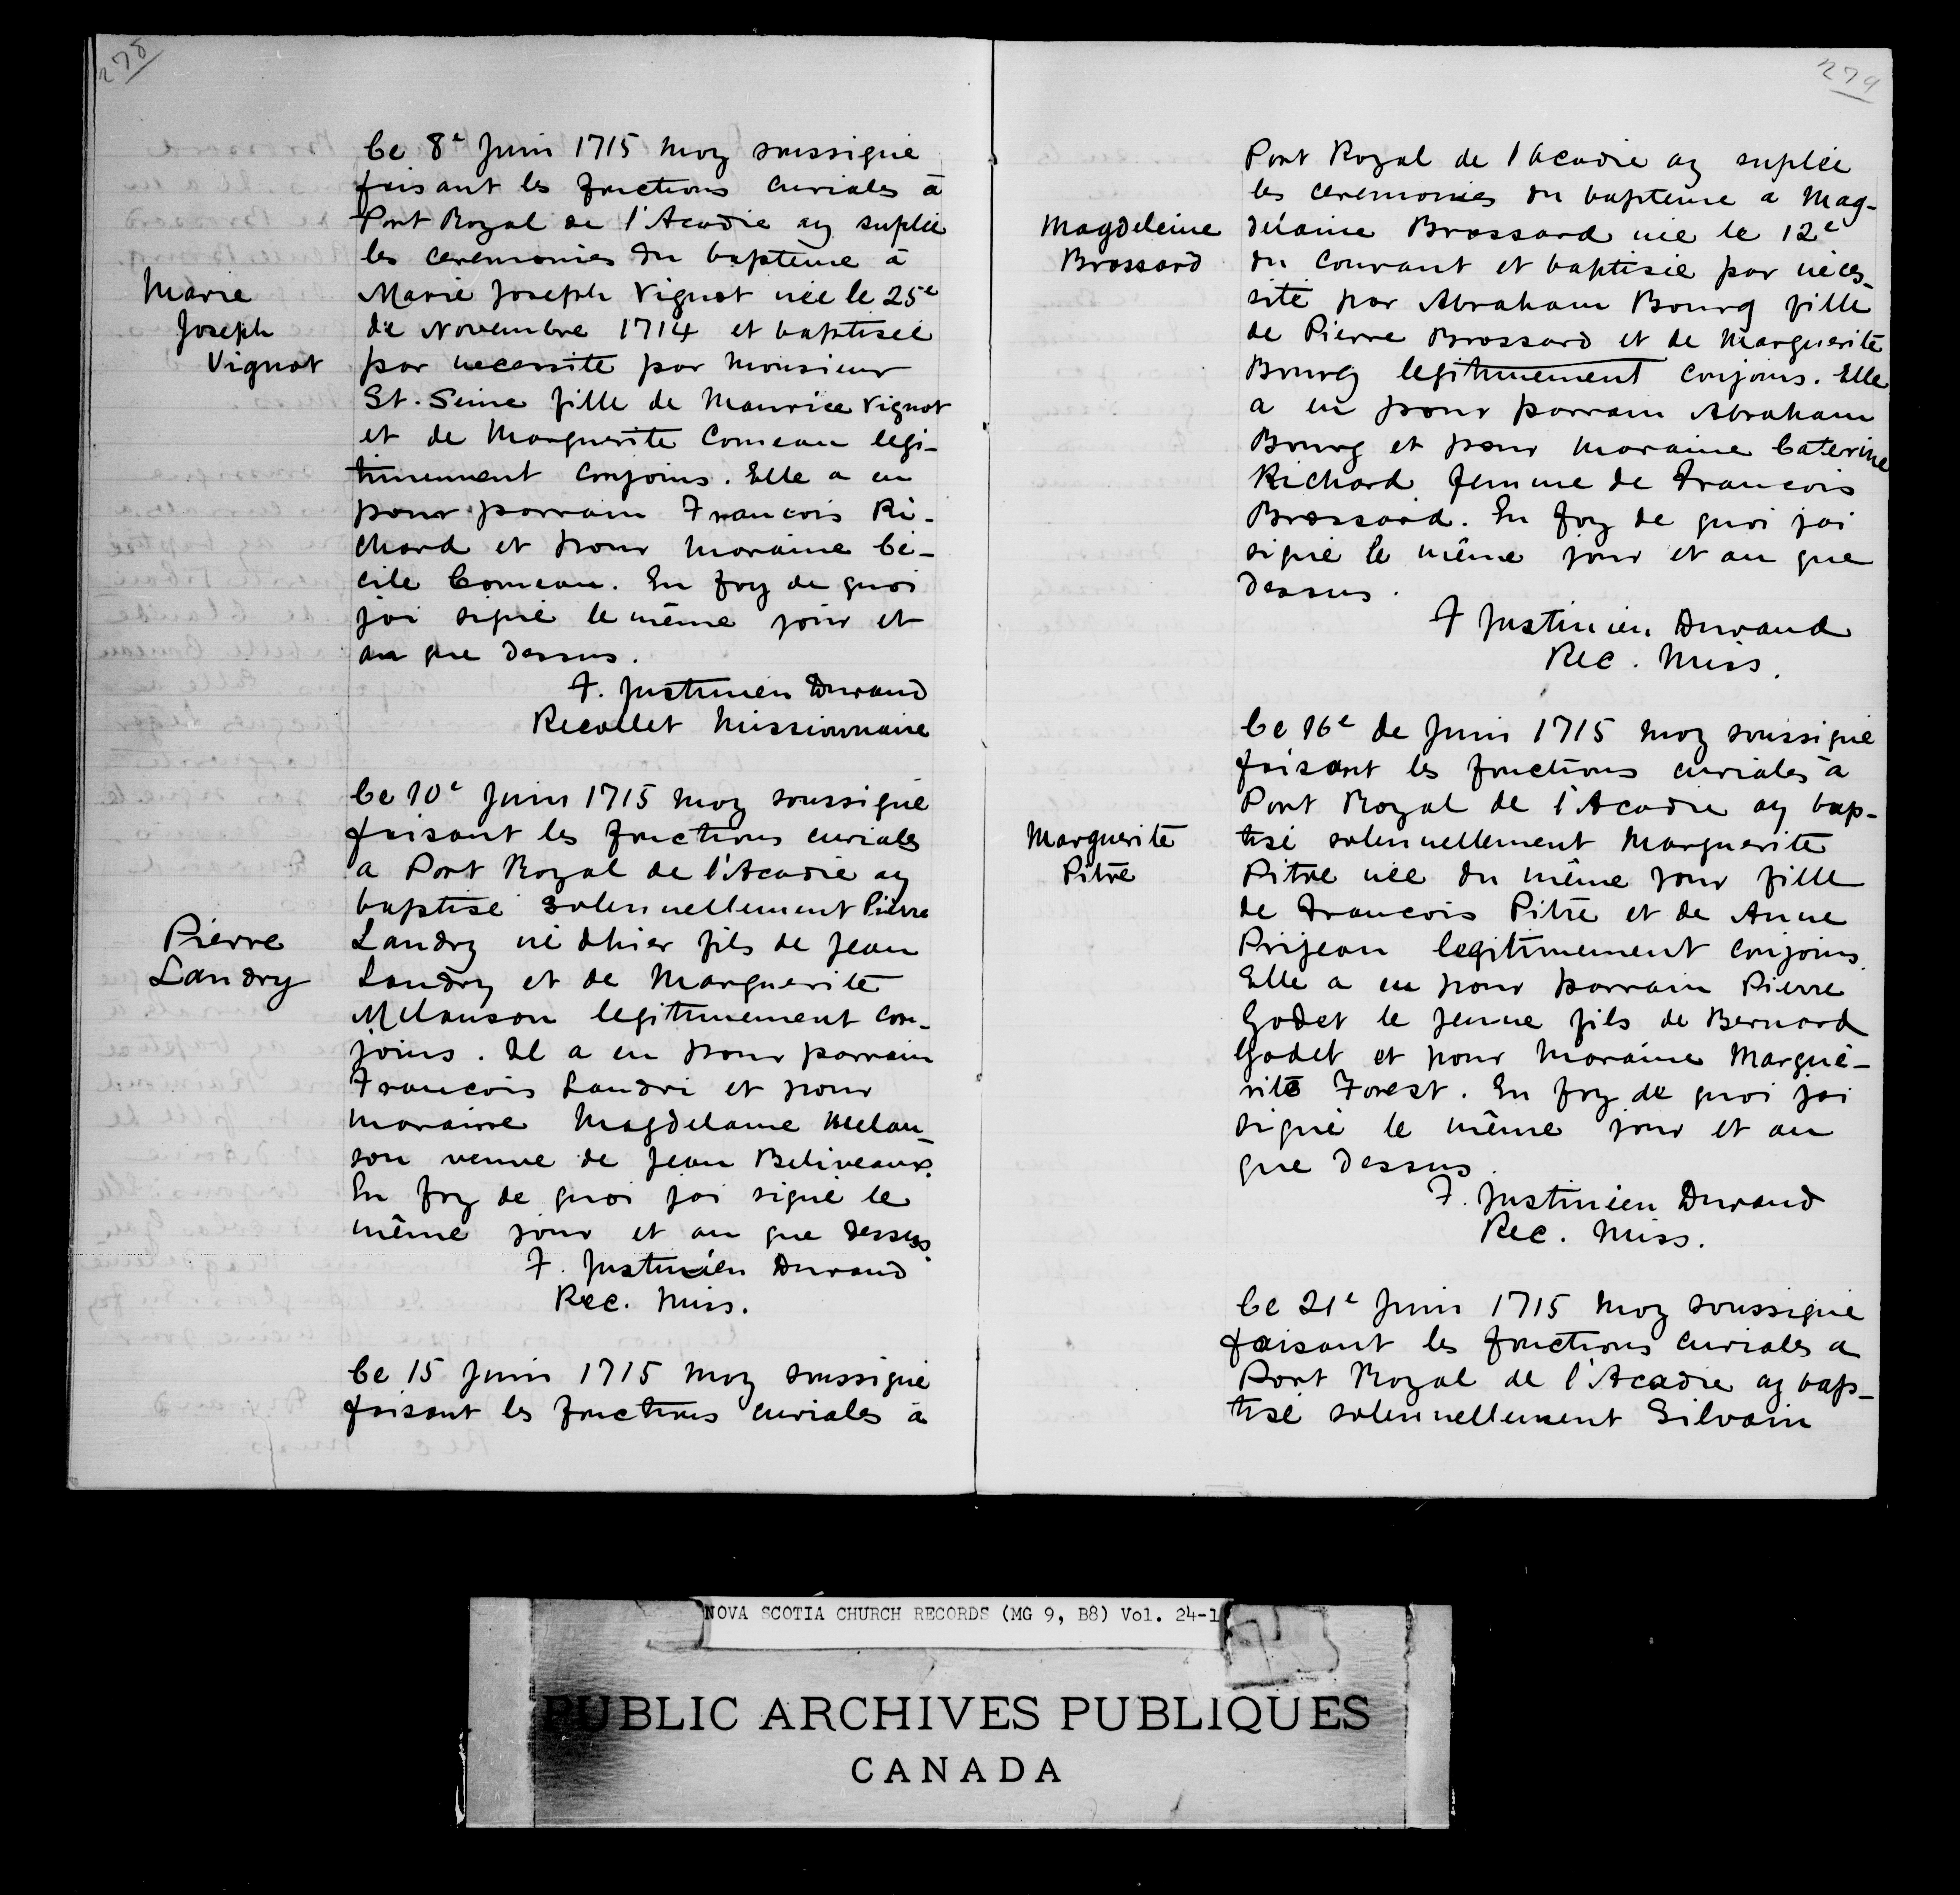 278
Ce 8e Juin 1715 moy soussigné
faisant les fonctions curiales à
Port Royal de l'Acadie ay suplée
les ceremonies du bapteme à
Marie
Joseph
Vignot
Marie Joseph Vignot née le 25e
de Novembre 1714 et baptisée
par necessité par Monsieur
St. Seine fille de Maurice Vignot
et de Marguerite Comeau legi-
timement conjoins. Elle a eu
pour parrain Francois Ri-
chard et pour maraine Cé-
cile Comeau. En foy de quoi
j'ai signé le même jour et
an que dessus.
F. Justinien Durand
Recollet Missionnaire
Ce 10e Juin 1715 moy soussigné
faisant les fonctions curiales
a Port Royal de l'Acadie ay
baptisé solennellement Pierre
Pierre
Landry
Landry né dhier fils de Jean
Landry et de Marguerite
Melanson legitimement con-
joins. Il a eu pour parrain
Francois Landri et pour
maraine Magdelaine Melan-
son veuve de Jean Beliveaux.
En foy de quoi jai signé le
même jour et an que dessus.
F. Justinien Durand
Rec. Miss.
Ce 15 Juin 1715 moy soussigné
faisant les fonctions curiales à
279
Port Royal de l'Acadie ay suplée
les ceremonies du bapteme a Mag-
Magdeleine
Brossard
delaine Brossard née le 12e
du courant et baptisée par néces-
sité par Abraham Bourg fille
de Pierre Brossard et de Marguerite
Bourg legitimement conjoins. Elle
a eu pour parrain Abraham
Bourg et pour maraine Caterine
Richard femme de Francois
Brossard. En foy de quoi jai
signé le même jour et an que
dessus.
F Justinien Durand
Rec. Miss.
Ce 16e de Juin 1715 moy soussigné
faisant les fonctions curiales à
Port Royal de l'Acadie ay bap-
Marguerite
Pitre
tisé solennellement Marguerite
Pitre née du même jour fille
de Francois Pitre et de Anne
Prijean legitimement conjoins.
Elle a eu pour parrain Pierre
Godet le jeune fils de Bernard
Godet et pour maraine Margue-
rite Forest. En foy de quoi jai
signé le même jour et an
que dessus.
F. Justinien Durand
Rec. Miss.
Ce 21e Juin 1715 moy soussigné
faisant les fonctions curiales a
Port Royal de l'Acadie ay bap-
tisé solennellement Silvain
NOVA SCOTIA CHURCH RECORDS (MG 9, B8) Vol. 24-1
PUBLIC ARCHIVES PUBLIQUES
CANADA